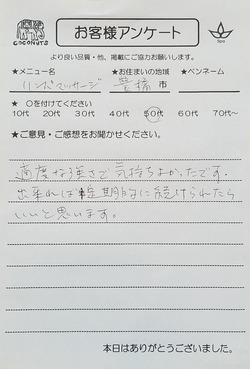 COCONUTS
お客様アンケート
Spa
より良い品質・他、掲載にご協力お願いします。
★メニュー名 ★お住まいの地域 ★ペンネーム
リンパマッサージ 豊橋 市
★ ○を付けてください
10代 20代 30代 40代 50代 60代 70代~
★ご意見・ご感想をお聞かせください。
適度な強さで気持ちよかったです。
出来れば定期的に続けられたら
いいと思います。
本日はありがとうございました。